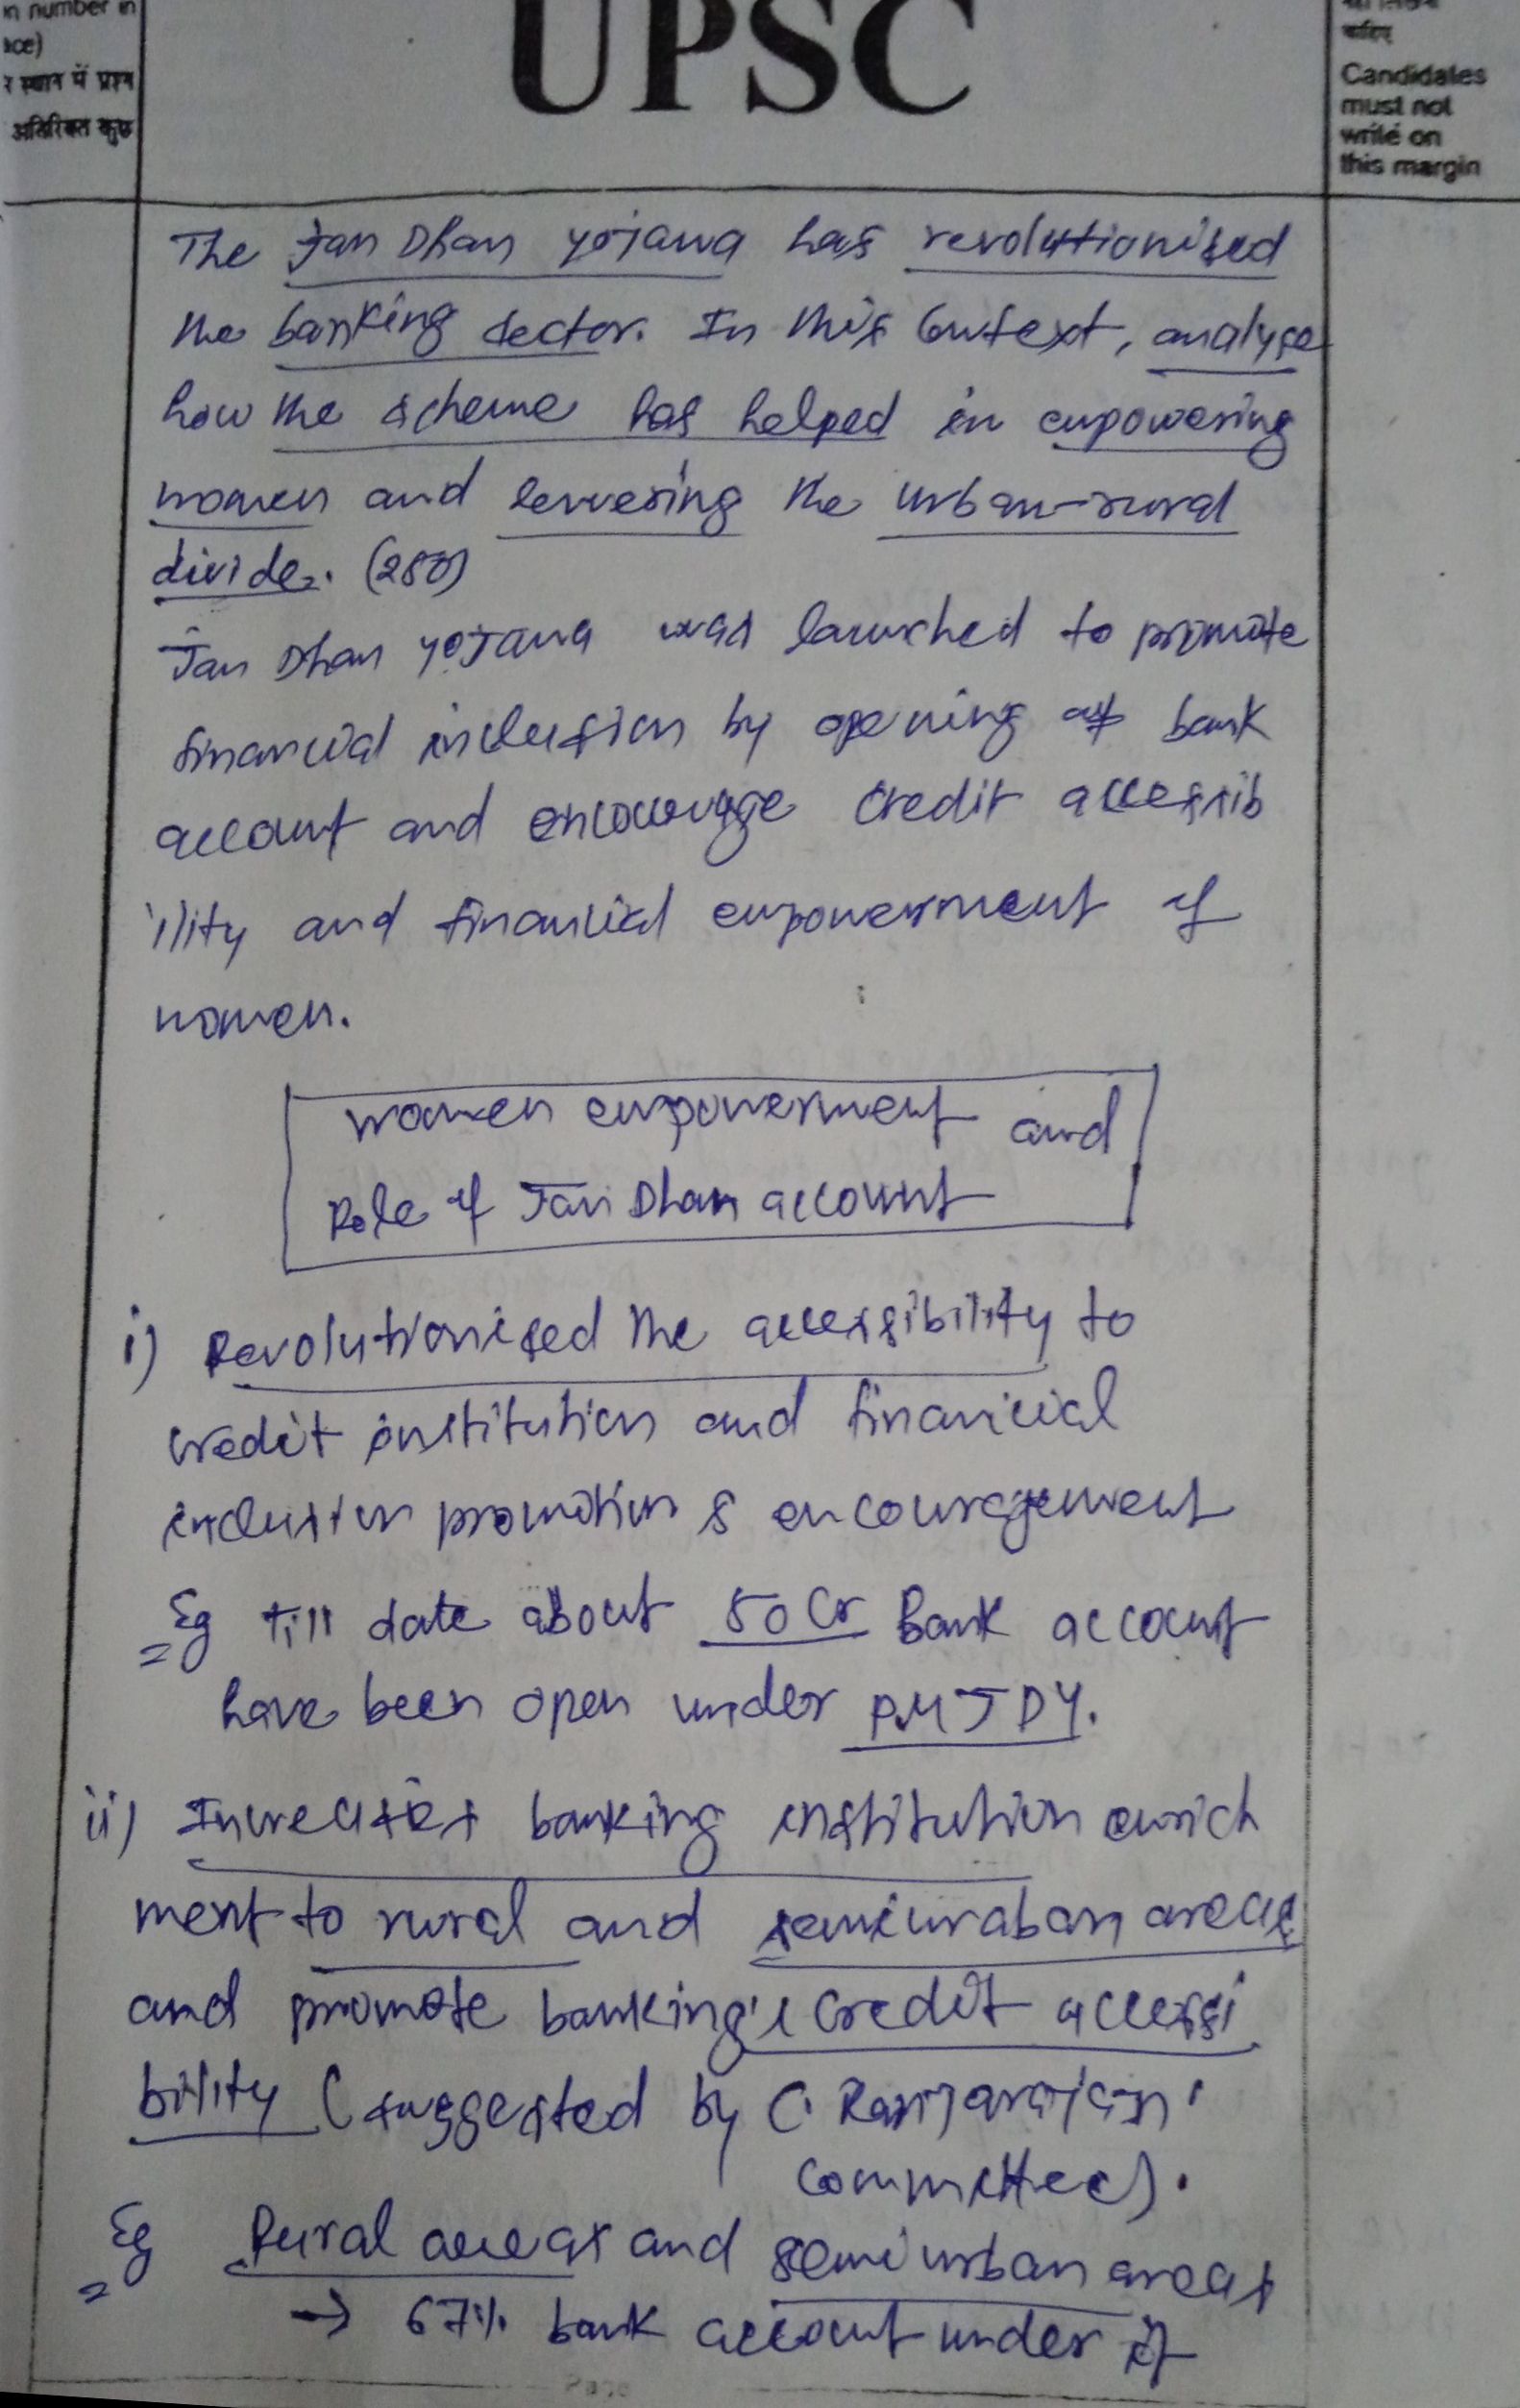 in number in
ace)
र स्थान में प्रश्न
अतिरिक्त कुछ
UPSC
चाहिए
Candidates
must not
write on
this margin
The Jan Dhan Yojana has revolutionised
the banking sector. In this context, analyse
how the scheme has helped in empowering
women and lessening the urban-rural
divide. (250)
Jan Dhan Yojana was launched to promote
financial inclusion by opening of bank
account and encourage credit accessib
ility and financial empowerment of
women.
Women empowerment and
Role of Jan Dhan account
i) Revolutionised the accessibility to
credit institution and financial
inclusion promotion & encouragement
Eg till date about 50 Cr Bank account
have been open under PMJDY.
ii) Increases banking institution enrich
ment to rural and semiuraban areas
and promote banking credit accessi
bility (suggested by C. Rangarajan
committee).
Eg Rural areas and semiurban areas
→ 67% bank account under it
Page